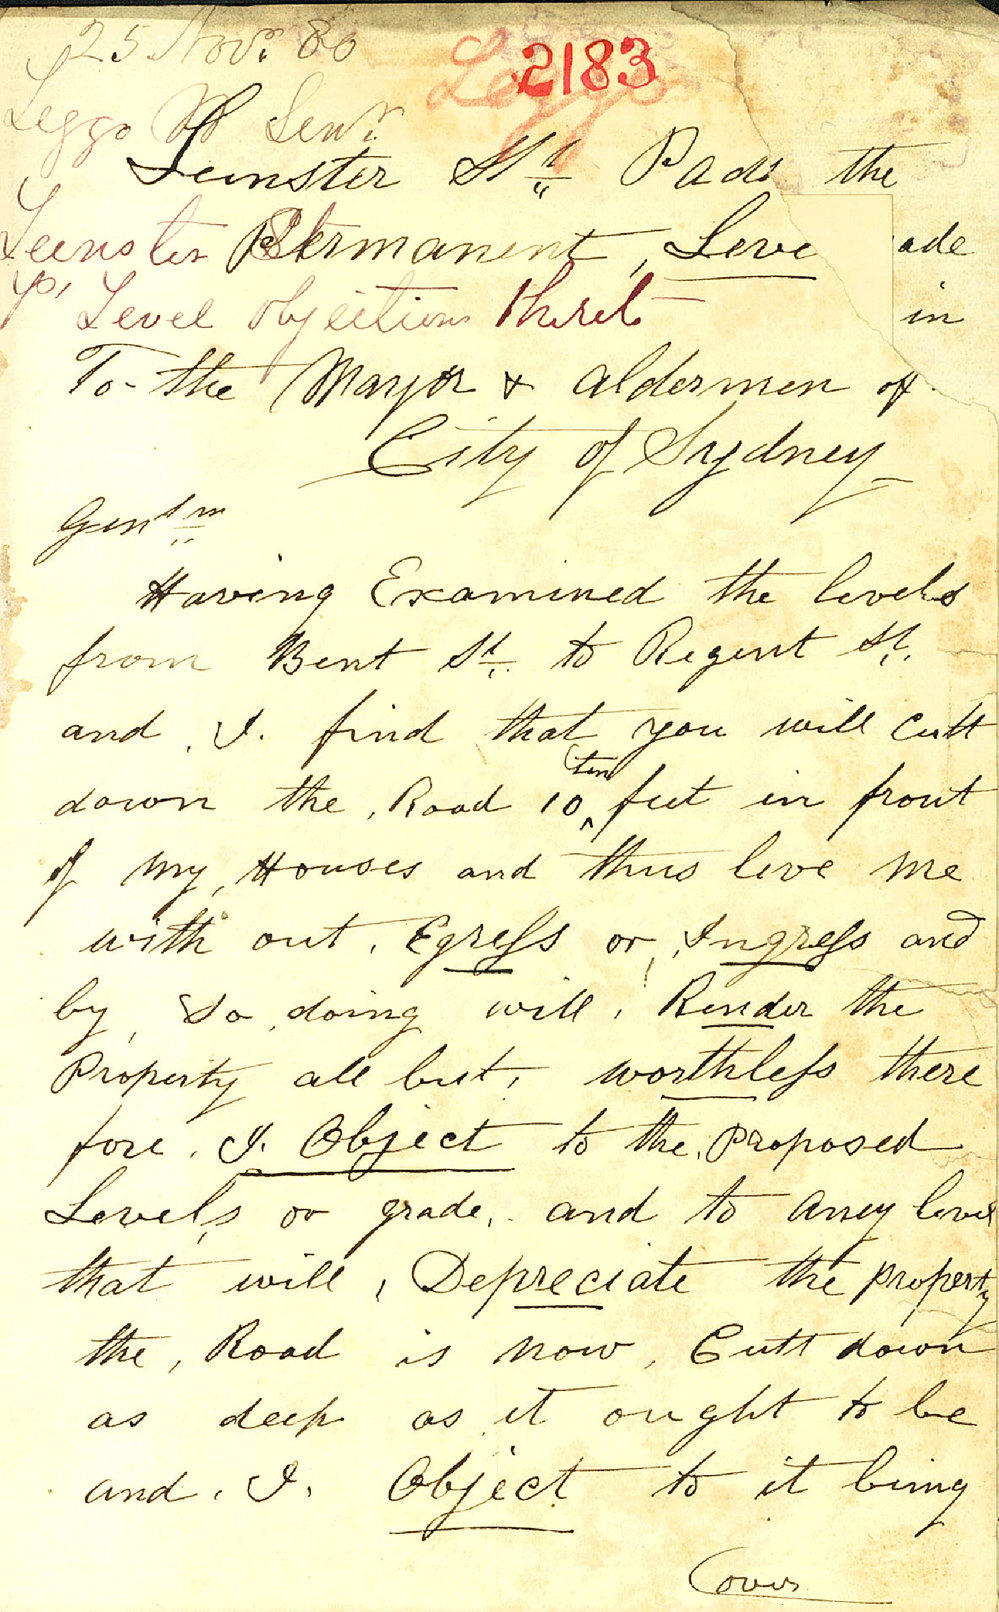 25 Novr. 80
2183
Leggo
Leggo W Senr.
Leinster St. Pads the
Leinster St Permanent, Leve ade
P. Level objections thereto in
To the Mayor & aldermen of
City of Sydney
Gentm
Having Examined the levels
from Bent St. to Regent St.
and I. find that you will Cutt
down the, Road 10 ten feet in front
of My, Houses and thus leve Me
with out, Egress or, Ingress and
by, So doing will, Render the
Property all but, worthless there
fore. I. Object to the, Proposed
Levels or grade, and to aney level
that will, Depreciate the property
the, Road is now, Cutt down
as deep as it ought to be
and. I. Object to it being
Over